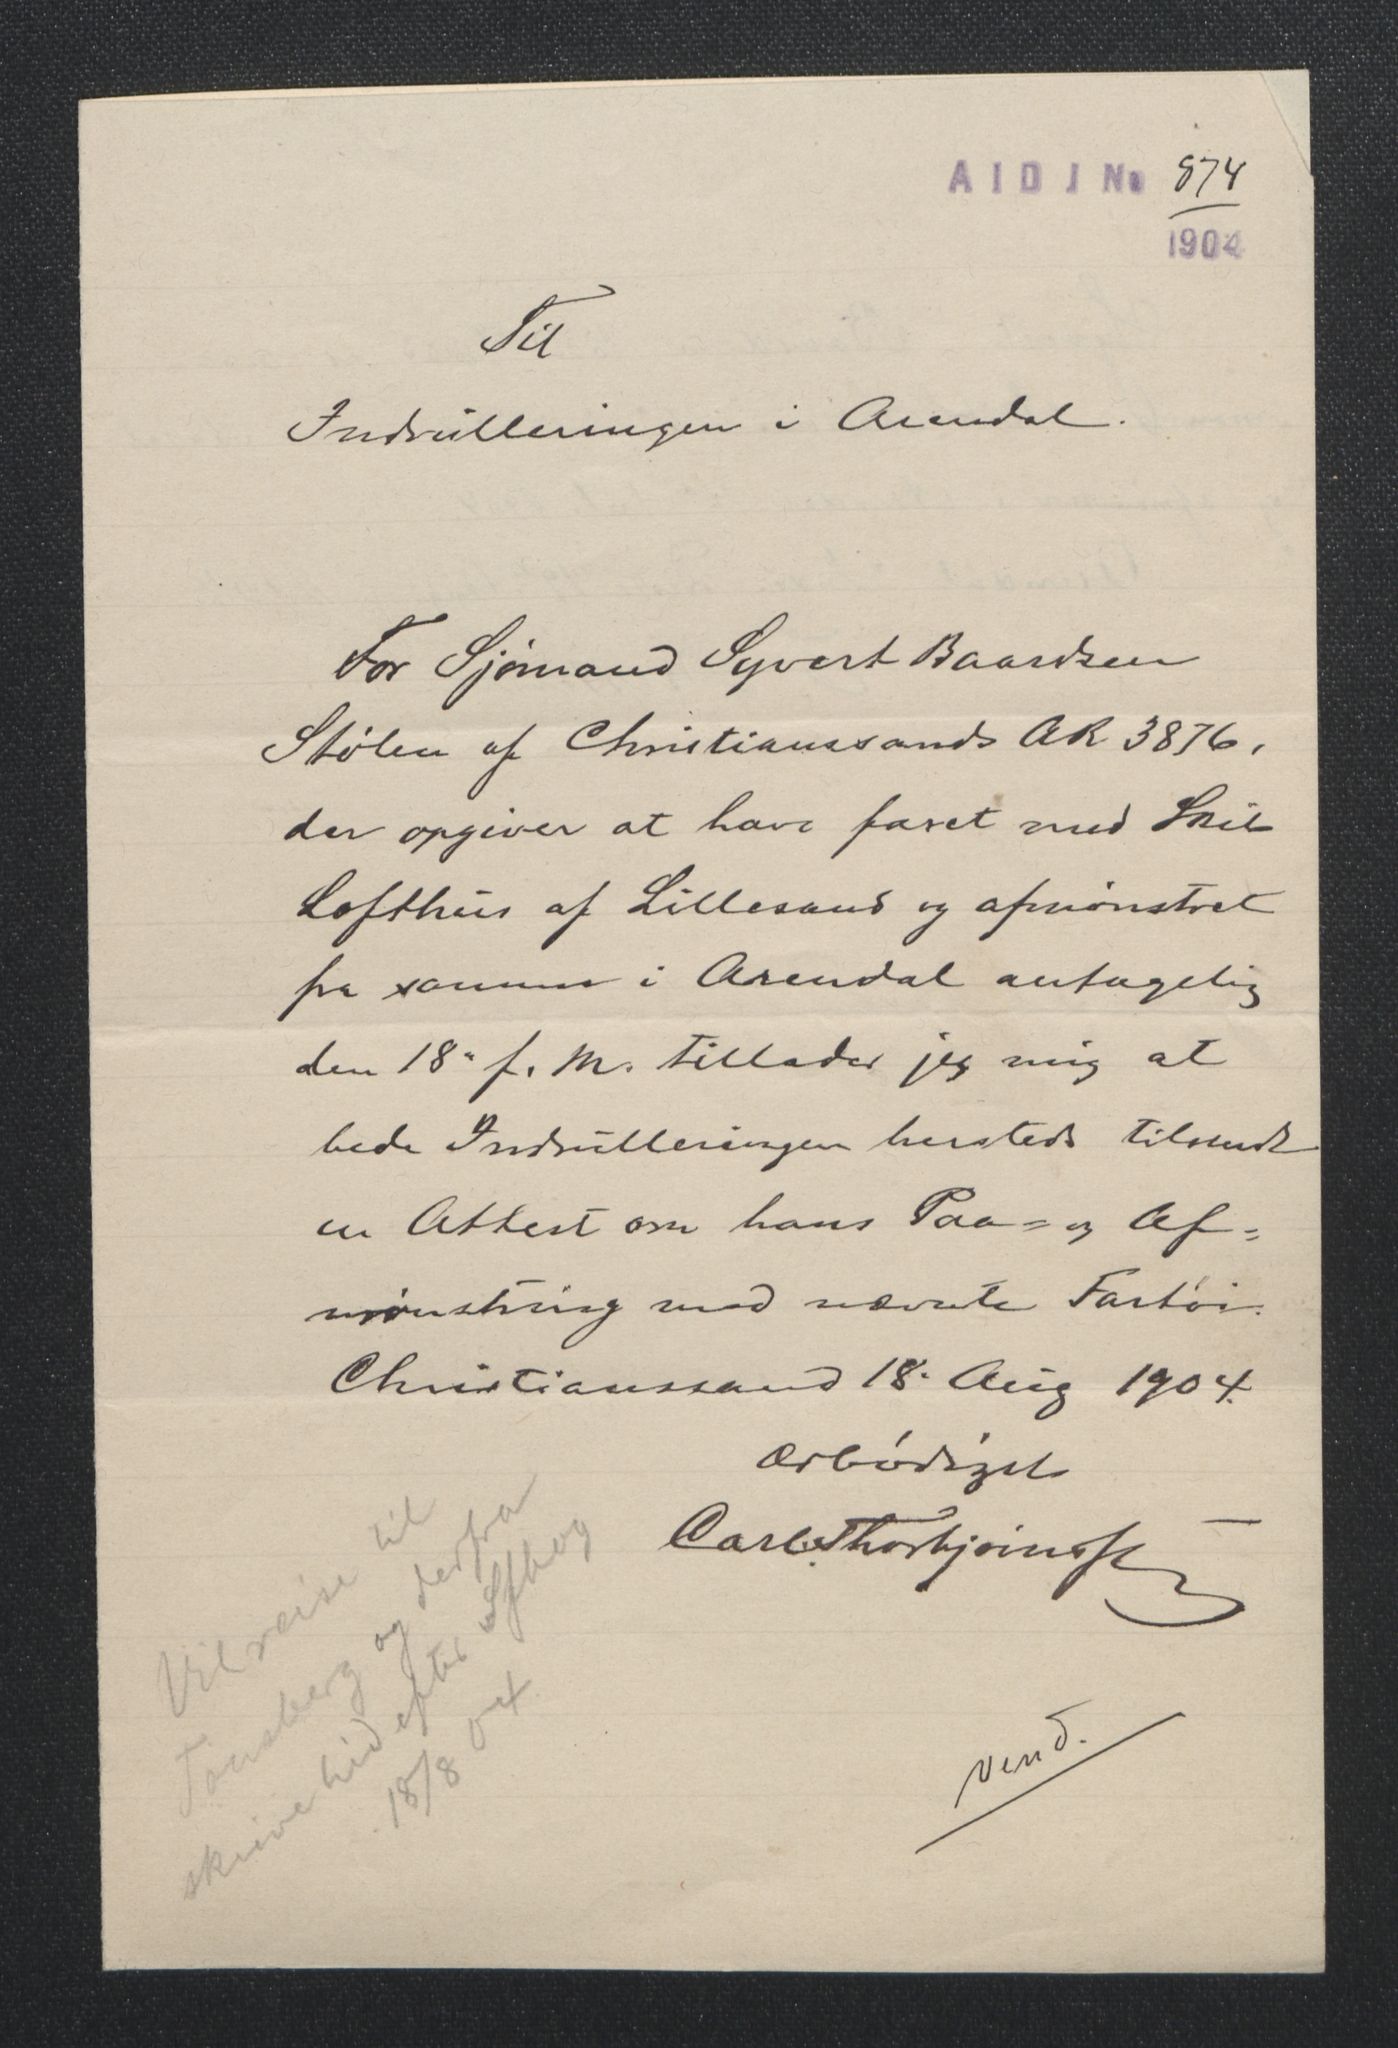 A I D J No 874
1904
Til
Indrulleringen i Arendal.
For Sjömand Syvert Baardsen
Stølen af Christianssands AR 3876,
der opgiver at have faret med Skib
Lofthus af Lillesand og afmönstret
fra samme i Arendal antagelig
den 18. f. M. tillader jeg mig at
bede Indrulleringen hersteds tilsendt
en Attest om hans Paa= og Af=
mönstring med nævnte Fartöi.
Christianssand 18. Aug 1904.
Ærbödigst
Carl Thorbjörnsen
vend.
Vil reise til
Tönsberg og derfra
skrive hid efter Sfbog
18/8 04.